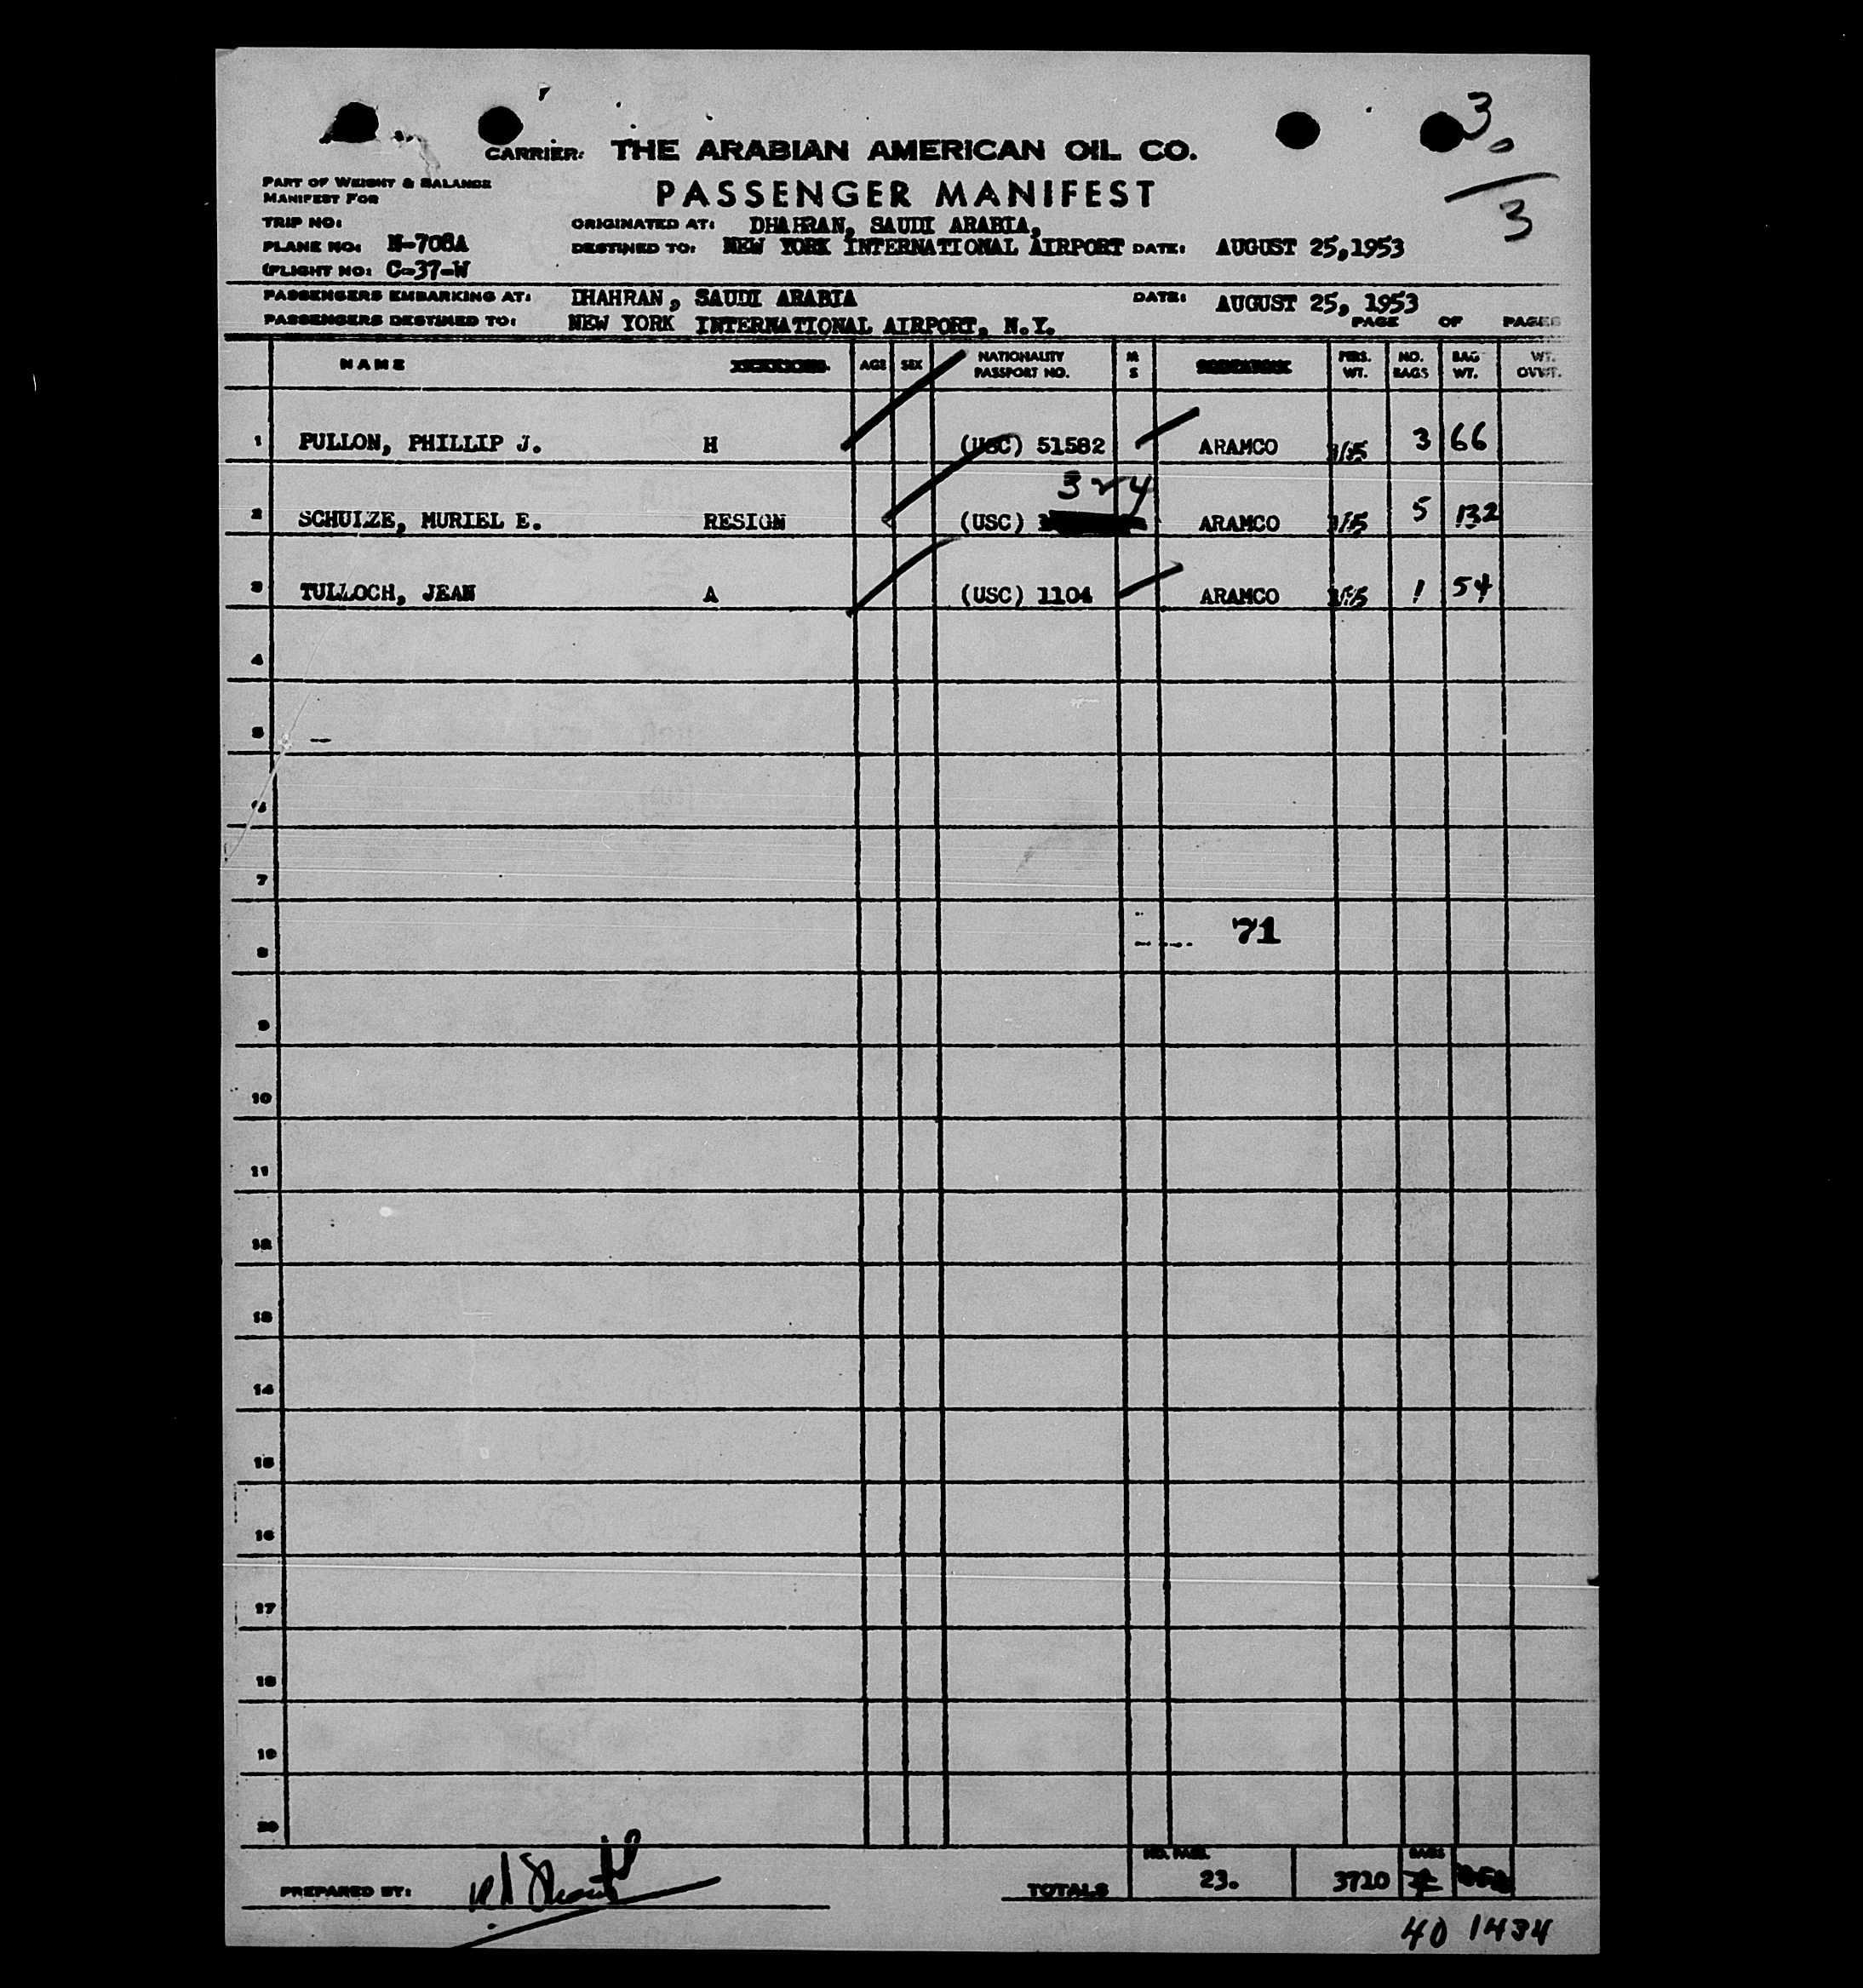 3
3
CARRIER: THE ARABIAN AMERICAN OIL CO.
PART OF WEIGHT & BALANCE
MANIFEST FOR
PASSENGER MANIFEST
TRIP NO: ORIGINATED AT: DHAHRAN, SAUDI ARABIA,
PLANE NO: N-708A DESTINED TO: NEW YORK INTERNATIONAL AIRPORT DATE: AUGUST 25,1953
(FLIGHT NO: C-37-W
PASSENGERS EMBARKING AT: DHAHRAN, SAUDI ARABIA DATE: AUGUST 25, 1953
PASSENGERS DESTINED TO: NEW YORK INTERNATIONAL AIRPORT, N.Y. PAGE OF PAGES
NAME AGE SEX NATIONALITY PASSPORT NO. M S PERS. WT. NO. BAGS BAG WT. WT. OVWT.
1 PULLON, PHILLIP J. H (USC) 51582 ARAMCO 3 66
3 2 4
2 SCHULZE, MURIEL E. RESIGN (USC) ARAMCO 5 132
3 TULLOCH, JEAN A (USC) 1104 ARAMCO 1 54
4
5
6
7
8 71
9
10
11
12
13
14
15
16
17
18
19
20
PREPARED BY: TOTALS NO. PASS. 23. 3720 BAGS
40 1434